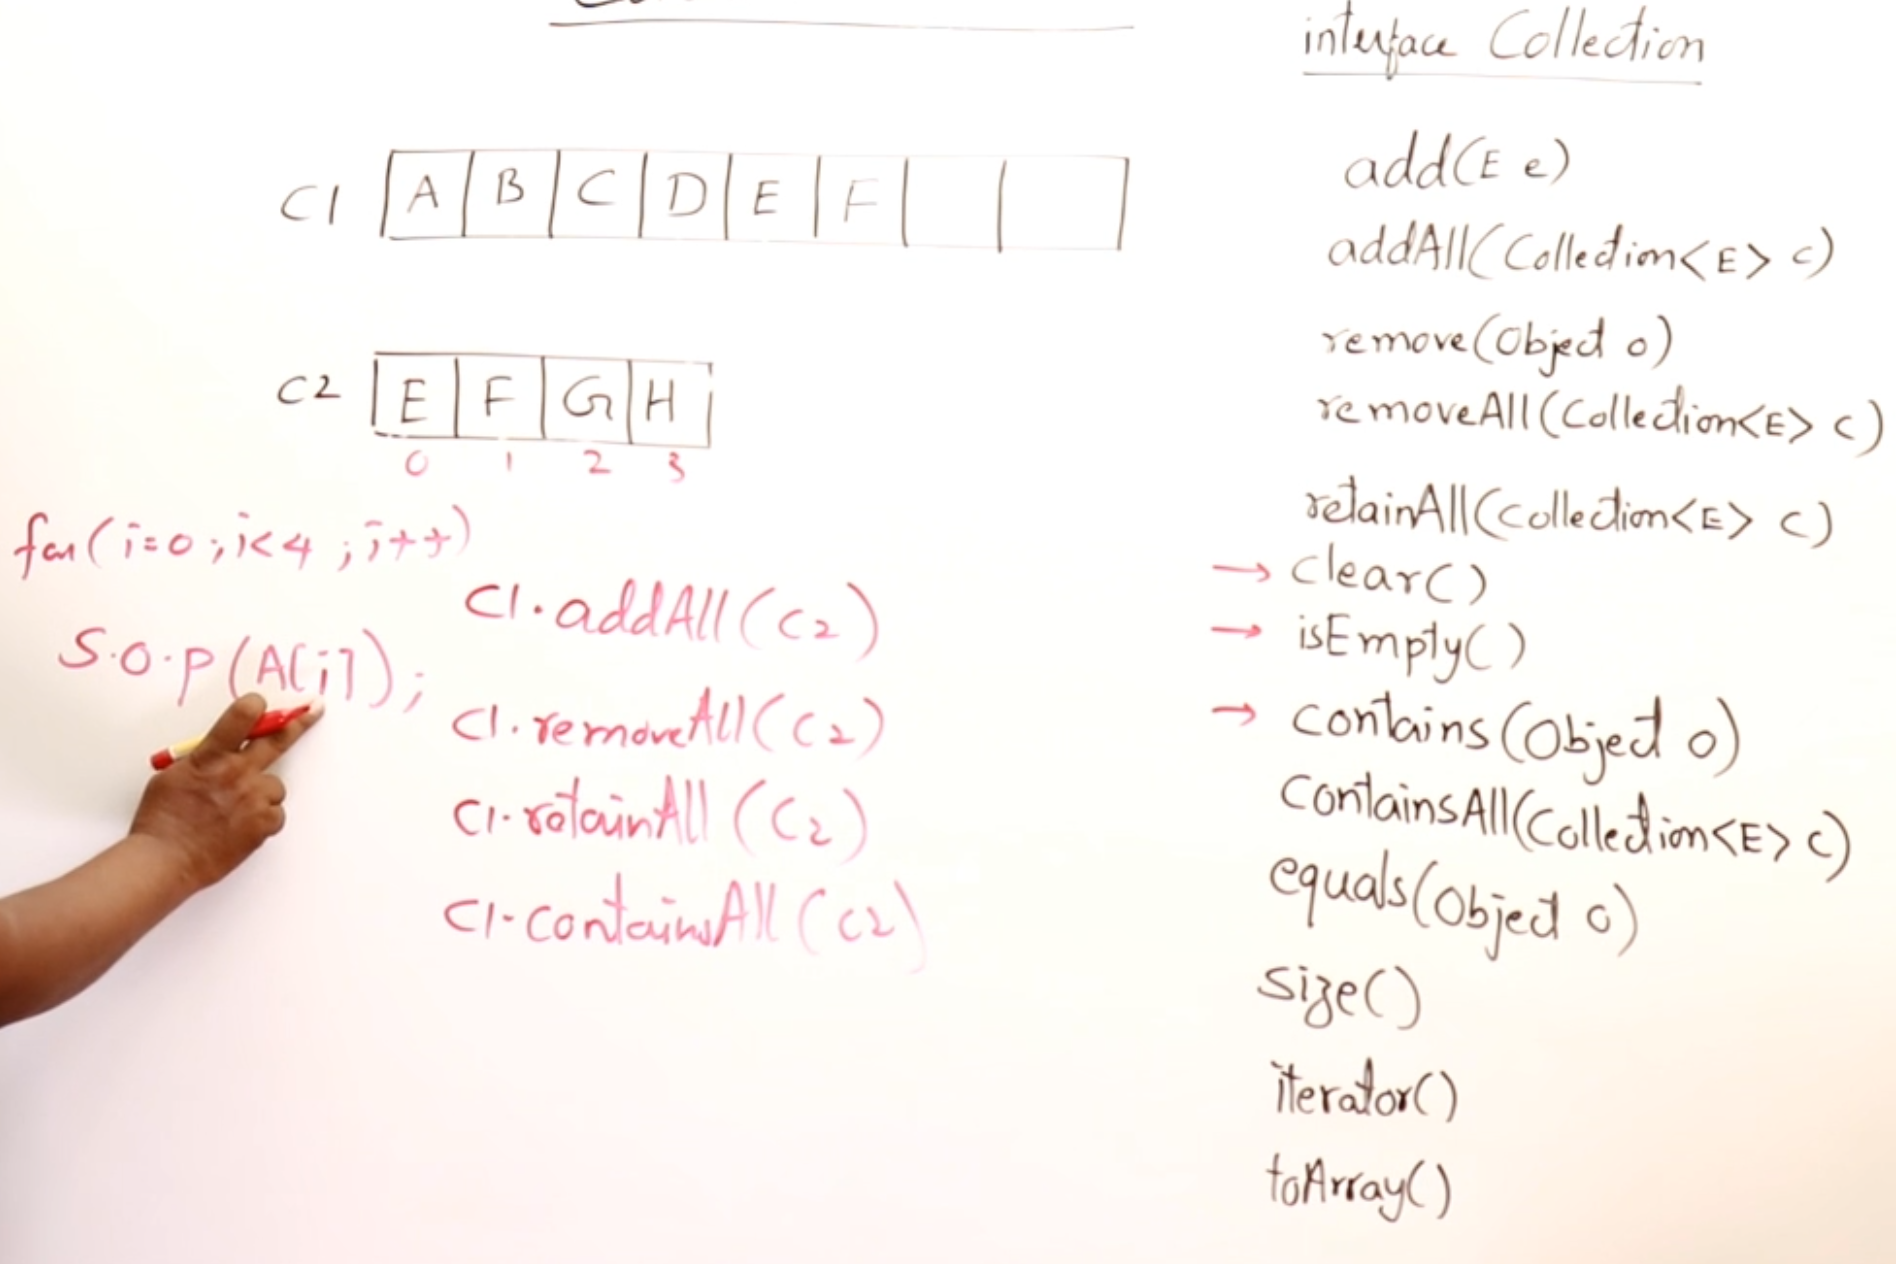 interface Collection
C1 A B C D E F
C2 E F G H
0 1 2 3
for(i=0;i<4;i++)
S.O.P(A[i]);
C1.addAll(C2)
C1.removeAll(C2)
C1.retainAll(C2)
C1.containsAll(C2)
add(E e)
addAll(Collection<E> c)
remove(Object o)
removeAll(Collection<E> c)
retainAll(Collection<E> c)
→ clear()
→ isEmpty()
→ contains(Object o)
containsAll(Collection<E> c)
equals(Object o)
size()
iterator()
toArray()